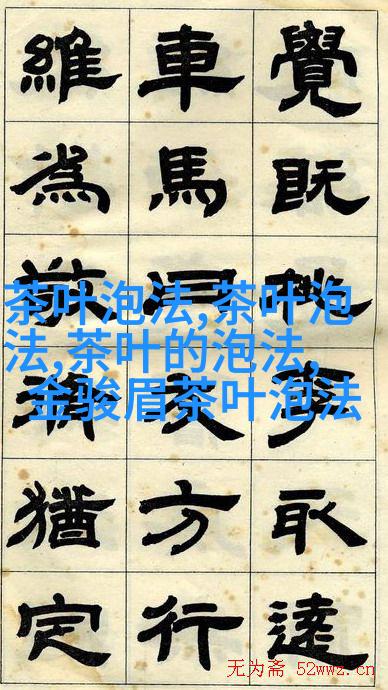 覺既取
車馬友方行
維為敬猶定
茶叶泡法,茶叶泡
法,茶叶的泡法,
金骏眉茶叶泡法
无为斋 52wwz.cn